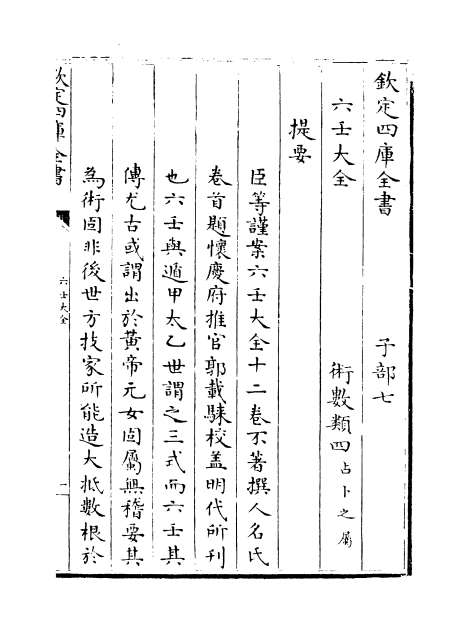 欽定四庫全書　子部七
六壬大全　術數類四占卜之屬
提要
臣等謹案六壬大全十二卷不著撰人名氏
卷首題懷慶府推官郭載騋校蓋明代所刊
也六壬與遁甲太乙世謂之三式而六壬其
傳尤古或謂出於黃帝元女固屬無稽要其
為術固非後世方技家所能造大抵數根於
欽定四庫全書
六壬大全